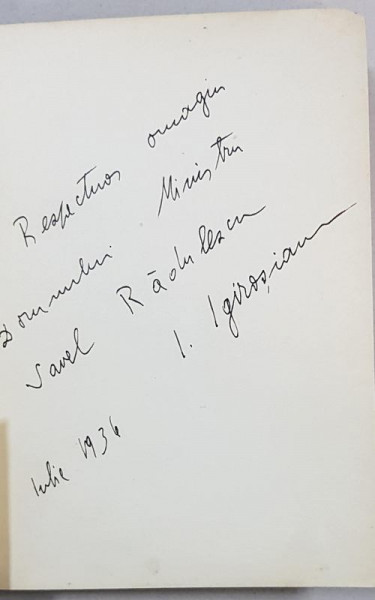 Respectuos omagiu
Domnului Ministru
Savel Rădulescu
I. Igiroșianu
Iulie 1936